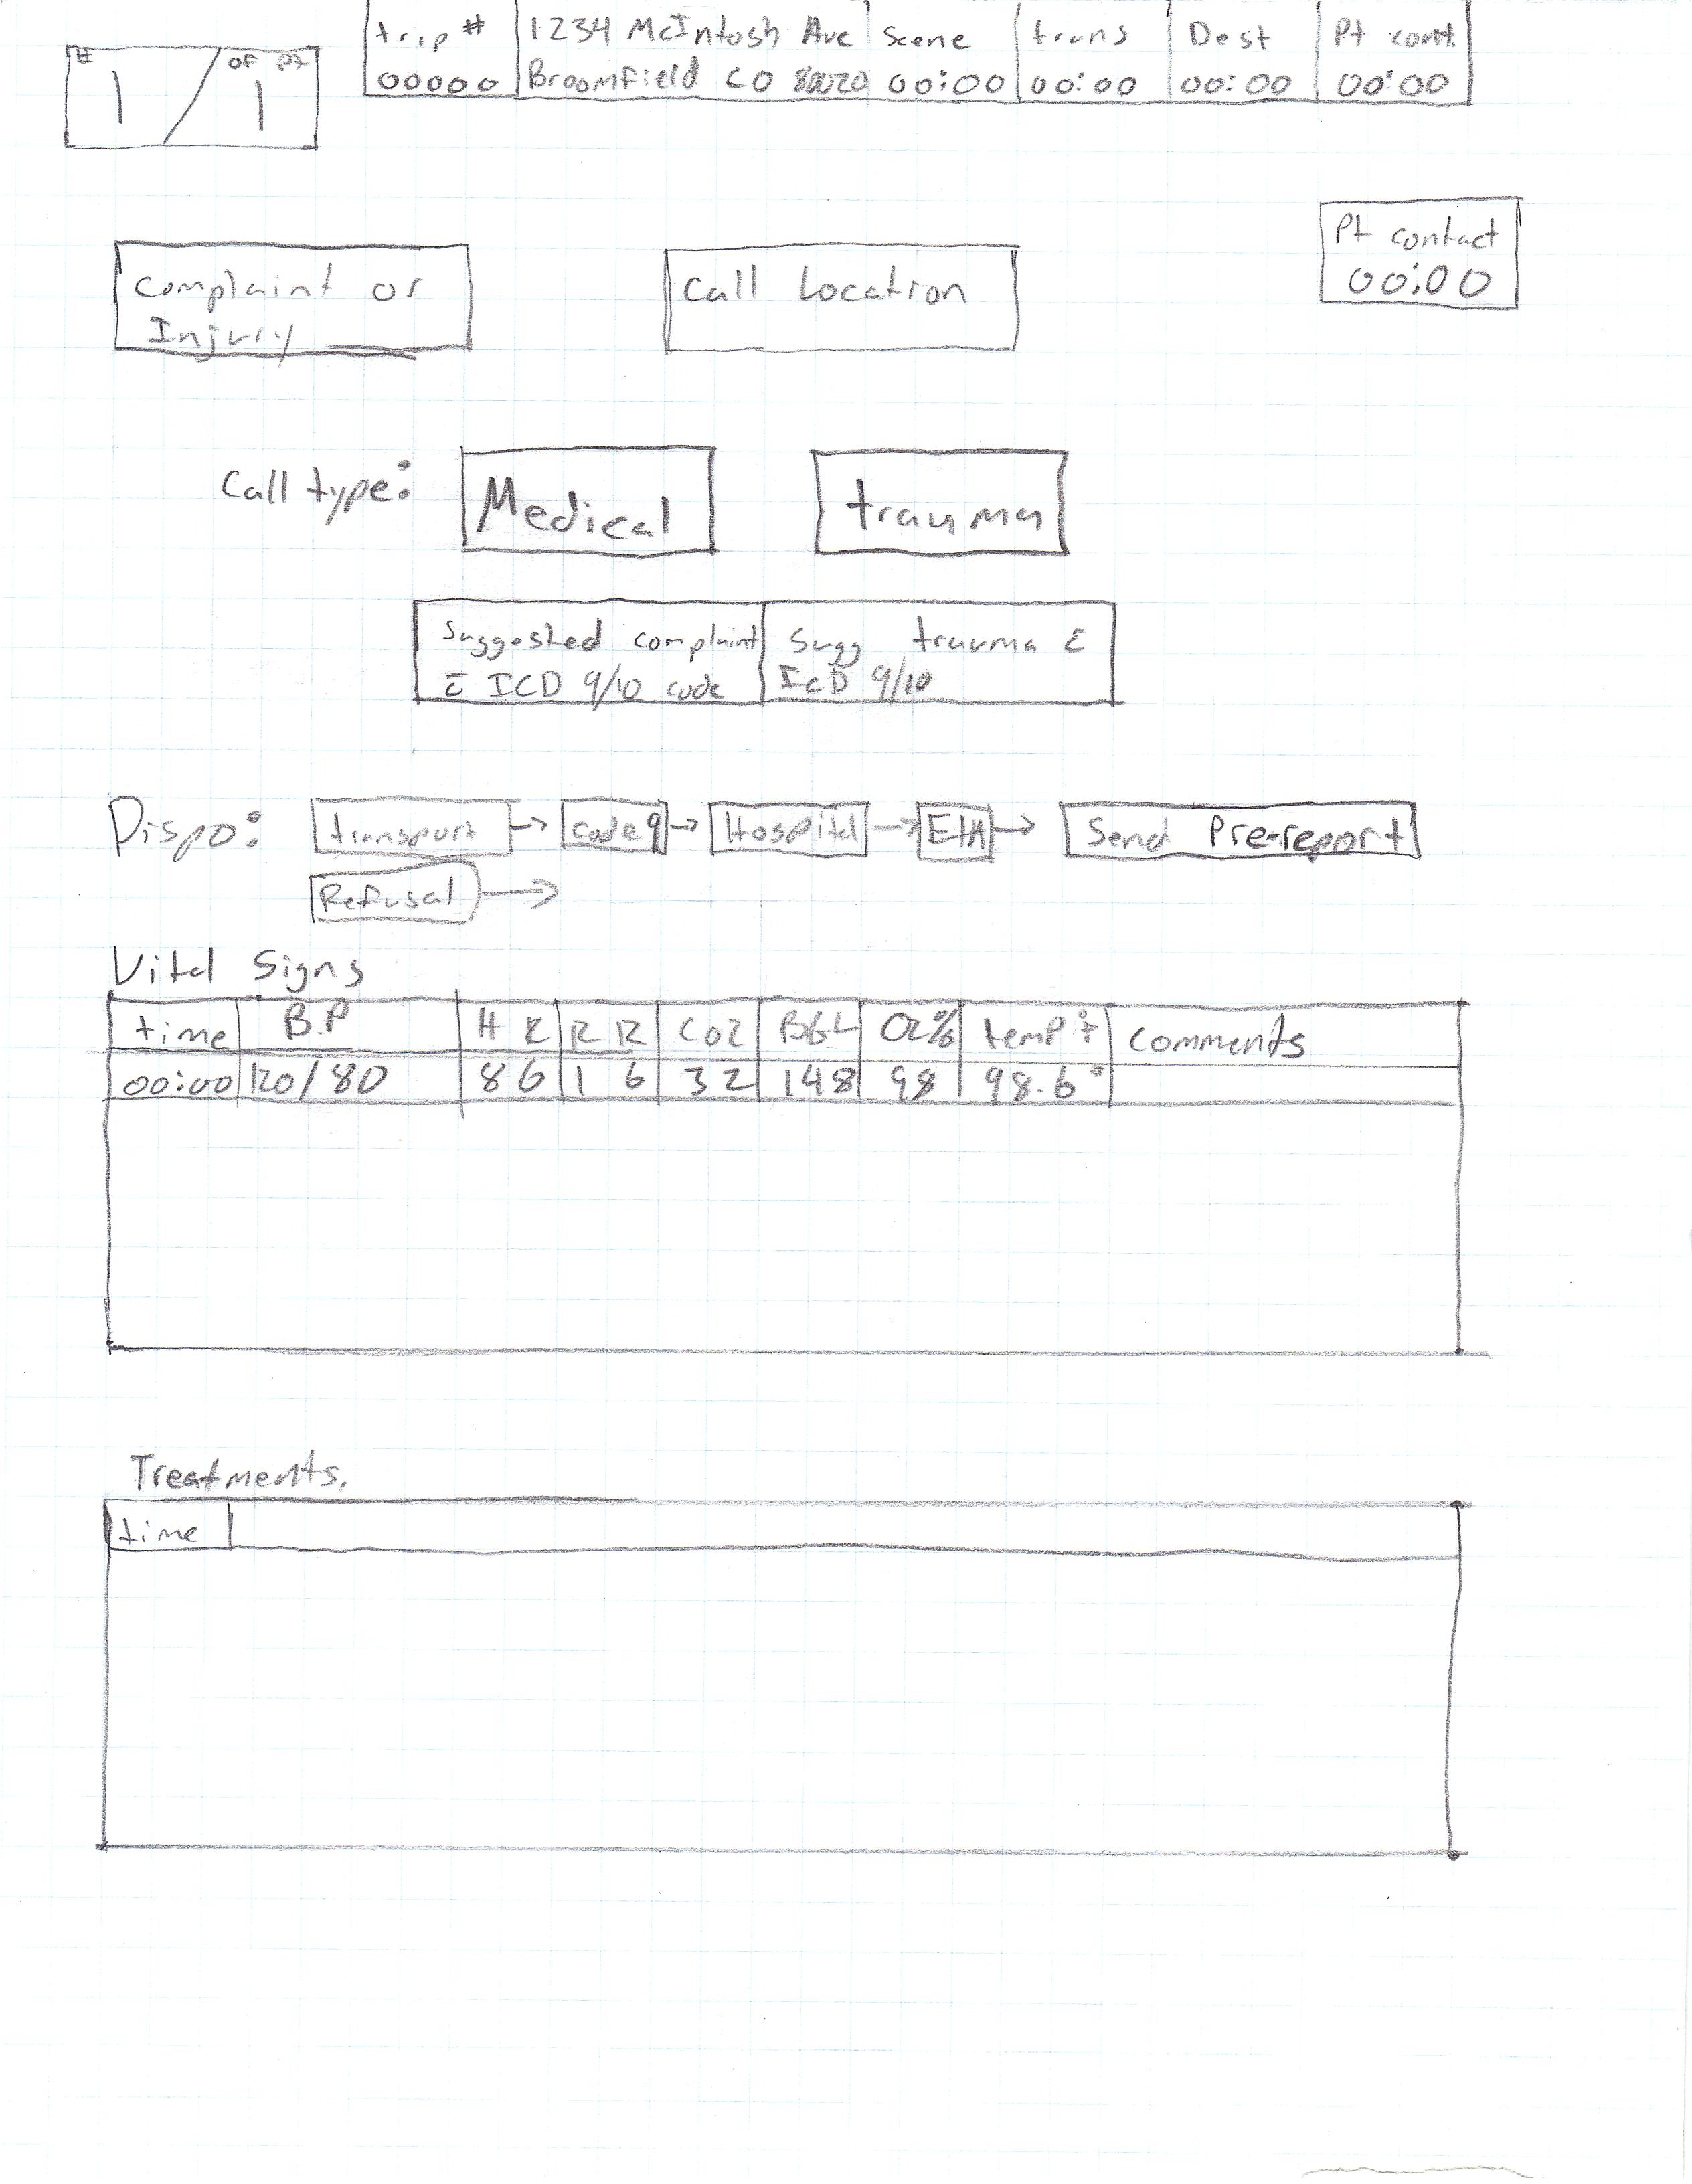 # 1 / of pt 1
trip # 1234 McIntosh Ave Scene trans Dest Pt cont.
00000 Broomfield CO 80020 00:00 00:00 00:00 00:00
Pt contact
00:00
Complaint or
Injury
Call Location
Call type: Medical trauma
Suggested complaint
c̄ ICD 9/10 code
Sugg trauma c̄
ICD 9/10
Dispo: transport → code → Hospital → ETA → Send Pre-report
Refusal →
Vital Signs
time BP HR RR CO2 BGL O2% temp comments
00:00 120/80 86 16 32 148 98 98.6°
Treatments.
time